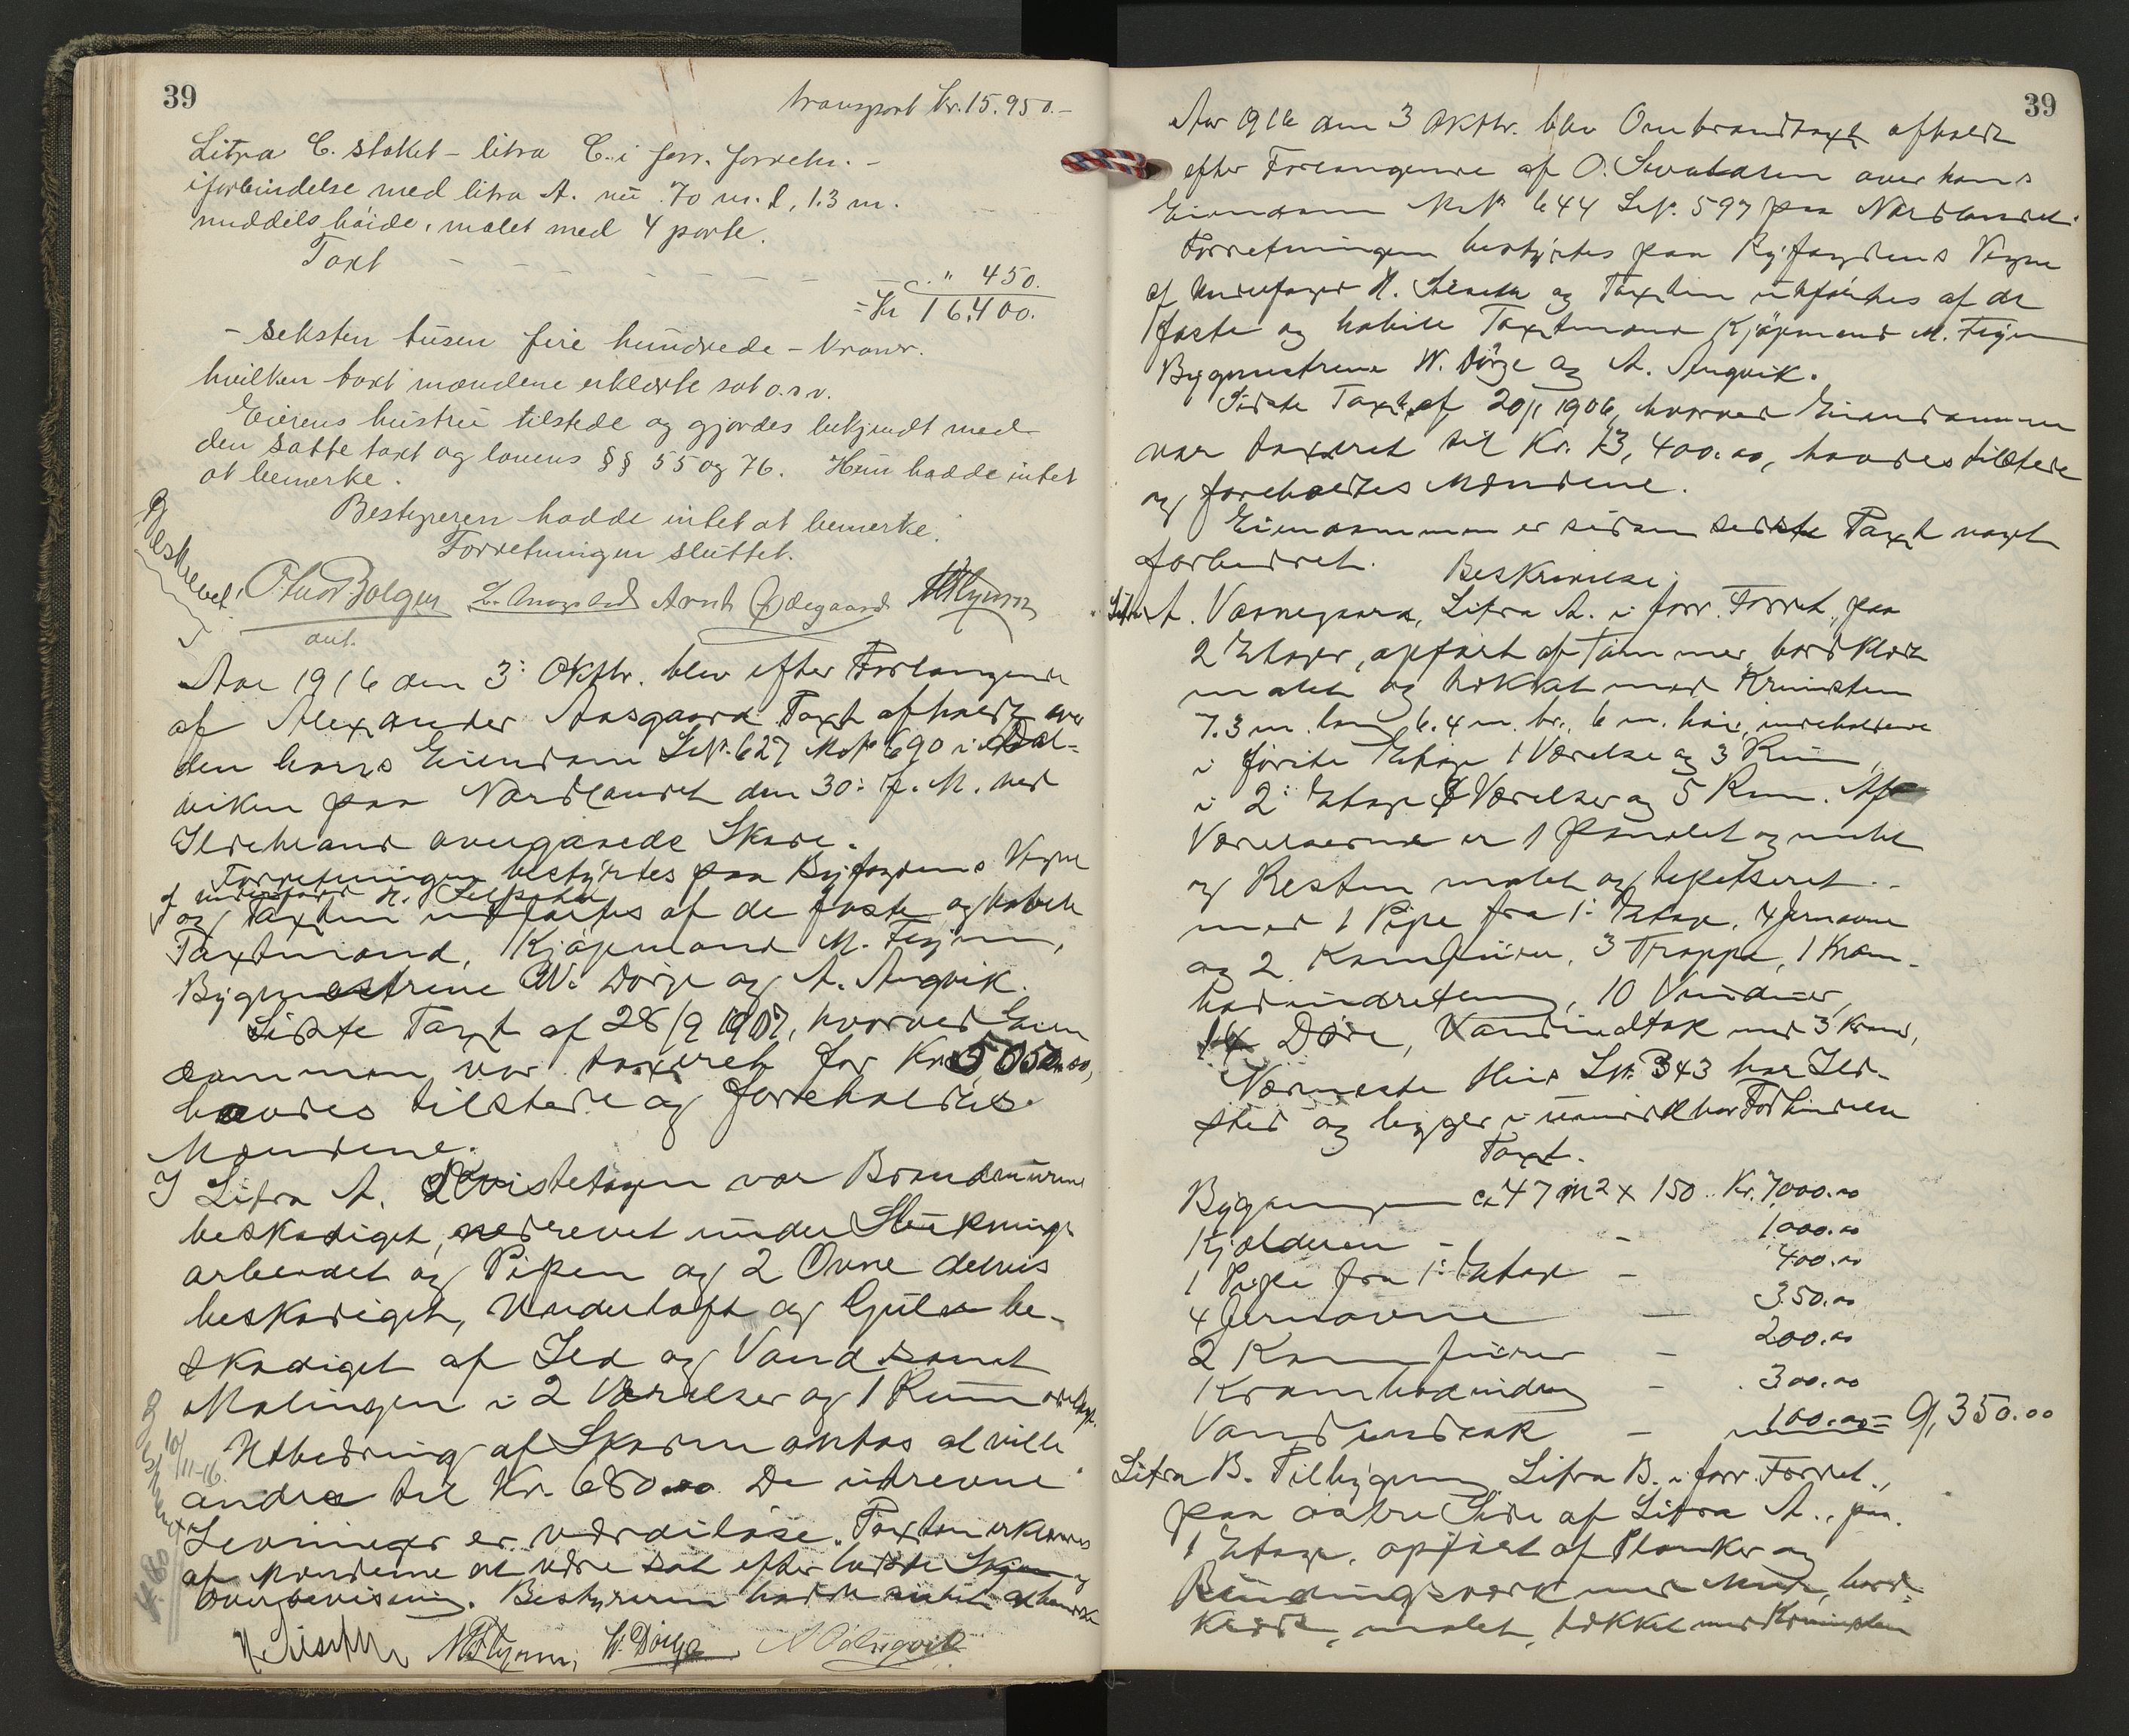 39
transport kr. 15.950.-
Litra C. staket - litra C. i forr. forretn. -
i forbindelse med litra A. nu 70 m. l, 1.3 m.
middels høide, malet med 4 porte.
Taxt - - - - - - " 450.
= Kr 16.400.
- seksten tusen fire hundrede - kroner.
hvilken taxt mændene erklærte sat o.s.v.
Eierens hustru tilstede og gjordes bekjendt med
den satte taxt og lovens §§ 55 og 76. Hun hadde intet
at bemerke.
Bestyreren hadde intet at bemerke.
Forretningen sluttet.
Beskrevet.
Arnt Ødegaard
aut.
Aar 1916 den 3: Oktbr. blev efter Forlangende
af Alexander Aasgaard Taxt afholdt over
den hans Eiendom LNr. 627 MNr 690 i Dal-
viken paa Nordlandet den 30: f. M. ved
Ildebrand overgaaede Skade.
Forretningen bestyrtes paa Byfogdens Vegne
af underfoged H.
og Taxten udførtes af de faste og habile
Taxtmænd, Kjøpmand M. Flynn,
Bygmestrene W. Dørge og A. Angvik.
Sidste Taxt af 28/9 1907, hvorved Eien
dommen var taxeret for Kr. 5050.00,
havdes tilstede og foreholdtes
Mændene.
I Litra A. Kvistetagen var Brandmuren
beskadiget, nedrevet under Sluknings
arbeidet og Pipen og 2 Ovne delvis
beskadiget, Underloft og Gulv be-
skadiget af Ild og Vand samt
Malingen i 2 Værelser og 1 Rum
Utbedring af Skaden antas at ville
andra til Kr. 680.00 De utrevne
Levninger er værdiløse. Taxten erklæres
af Mændene at være sat efter bedste Skjøn og
Overbevisning. Bestyreren hadde intet at bemerke
10/11-16.
W. Dørge A. Angvik
39
Aar 1916 den 3 Oktbr. blev Ombrandtaxt afholdt
efter Forlangende af O. Svendsen over hans
Eiendom MNr 644 LNr. 597 paa Nordlandet.
Forretningen bestyrtes paa Byfogdens Vegne
af Underfoged H. og Taxten utførtes af de
faste og habile Taxtmænd Kjøpmand M. Flynn
Bygmestrene W. Dørge og A. Angvik.
Sidste Taxt af 20/1 1906, hvorved Eiendommen
var taxeret til Kr. 13,400.00, havdes tilstede
og foreholdtes Mændene.
Eiendommen er siden sidste Taxt noget
forbedret. Beskrivelse:
Litra A. Vaaningaard, Litra A. i forr. Forret., paa
2 Etager, opført af Tømmer, bordklædt
malet og tækket med Krumsten
7.3 m. lang 6.4 m. br., 6 m. høi, indeholdende
i første Etage 1 Værelse og 3 Rum,
i 2: Etage Værelser og 5 Rum. Af
Værelserne er 1 panelet og malet
og Resten malet og tapetseret.
med 1 Pipe fra 1: Etage, 4 Jernovne
og 2 Komfurer, 3 Trappe, 1 Kram-
bodindretning, 10 Vinduer,
14 Døre, Vandindtak med 3 Kraner,
Nærmeste Hus LNr. 343 har Ild-
sted og ligger i umiddelbar Forbindelse
Taxt.
Bygningen ca 47 m2 x 150.. Kr. 7000.00
Kjælderen - - 1000.00
1 Pipe fra 1: Etage - 400.00
4 Jernovne - 350.00
2 Komfurer - 200.00
Krambodindretn - 300.00
Vandindtak - 100.00 = 9,350.00
Litra B. Tilbygning Litra B. i forr. Forret.,
paa østre Side af Litra A., paa
1 Etage, opført af Planker og
Bindingsværk med Mur, bord-
klædt, malet, tækket med Krumsten